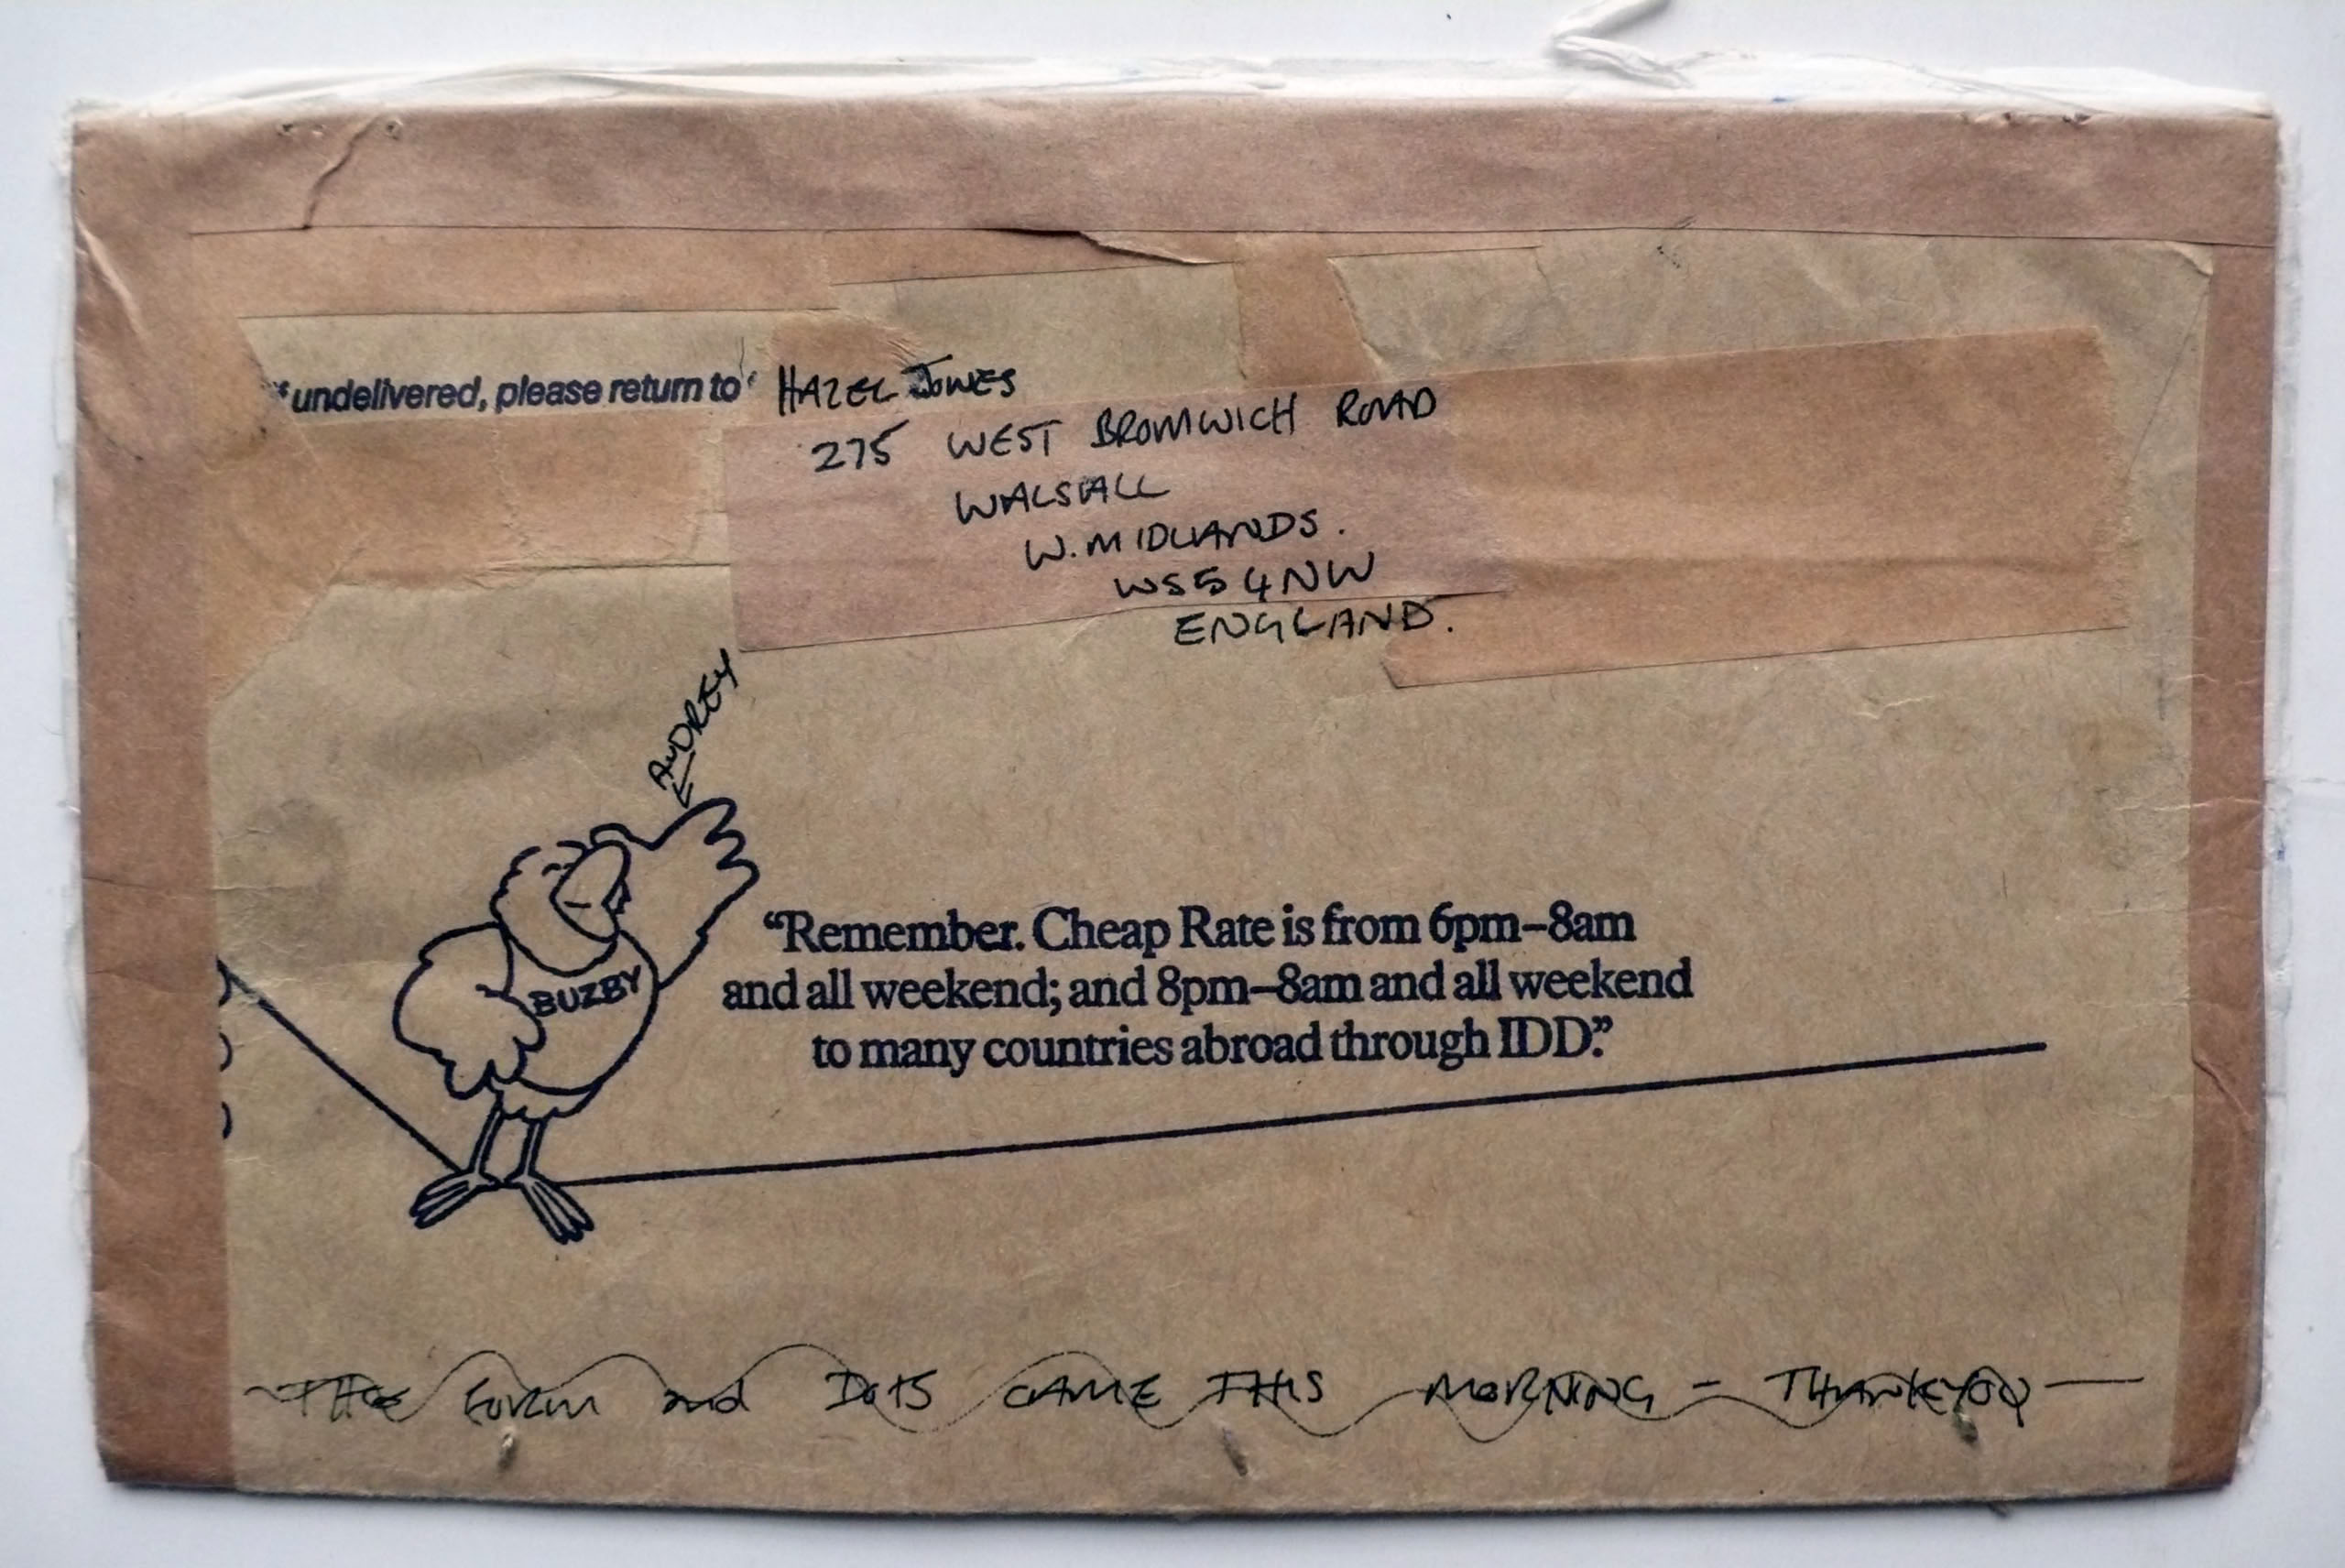 undelivered, please return to HAZEL JONES
275 WEST BROMWICH ROAD
WALSALL
W. MIDLANDS.
WS5 4NW
ENGLAND.
AUDREY
BUZBY
“Remember. Cheap Rate is from 6pm–8am
and all weekend; and 8pm–8am and all weekend
to many countries abroad through IDD.”
FORUM and DOTS CAME THIS MORNING = THANKYOU —